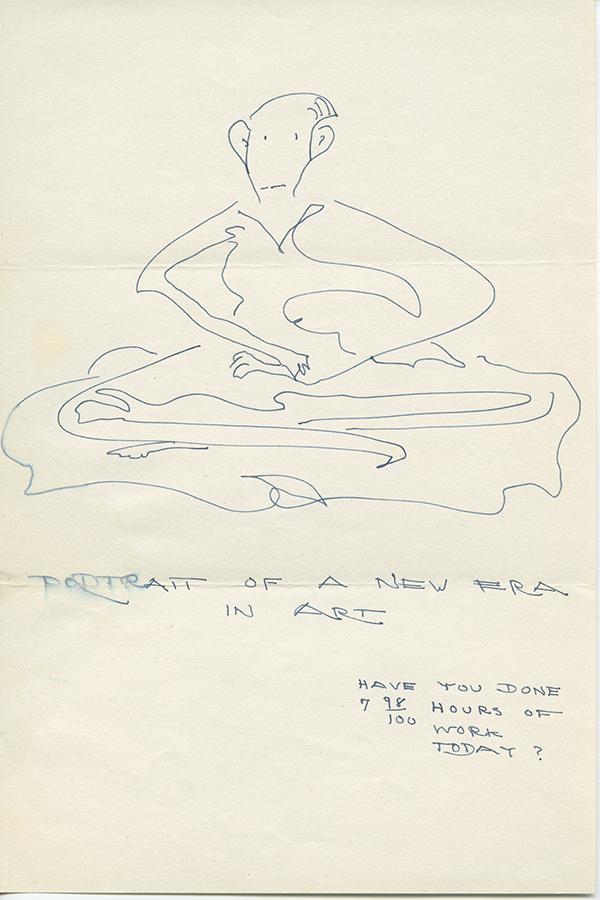 PORTRAIT OF A NEW ERA
IN ART
HAVE YOU DONE
7 98/100 HOURS OF
WORK
TODAY?